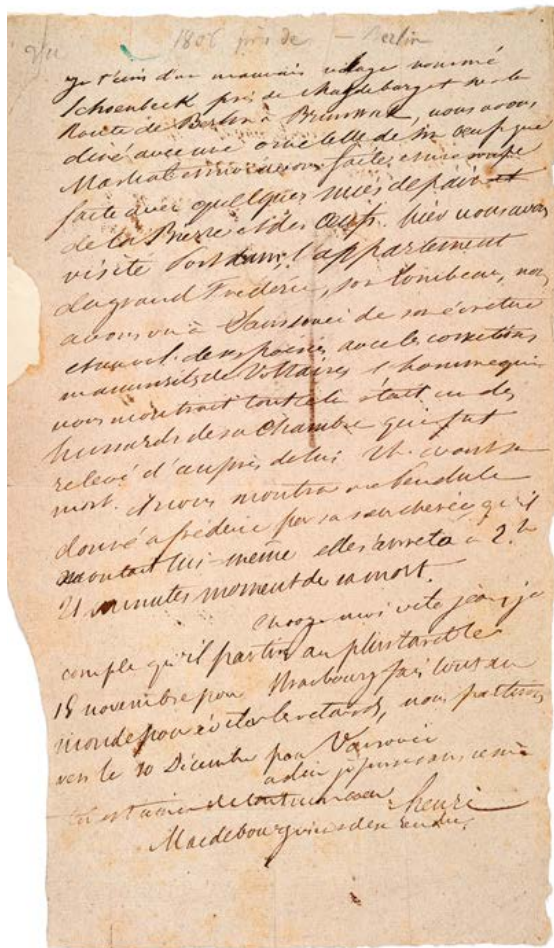 1806 près de — Berlin
je t'écris d'un mauvais village nommé
Schoenbeck près de Magdebourg et sur la
Route de Berlin à Brunswick, nous avons
diné avec une omelette de six oeufs que
Martial et moi avons faite, et une soupe
faite avec quelques mies de pain et
de la Bierre et des oeufs. hier nous avons
visité Potsdam, l'appartement
du grand Frédéric, son tombeau, nous
avons vu à Sanssouci de son écriture
un vol. de ses poesies, avec les corrections
manuscrits de Voltaire, l'homme qui
nous montrait tout cela était un des
hussards de sa chambre qui fut
relevé d'auprès de lui 2 h. avant sa
mort. il nous montra une Pendule
donné à frédéric par sa soeur cherée qu'il
montait lui-même elle s'arreta à 2.h
21 minutes moment de sa mort.
moi vite jean, je
compte qu'il partira au plus tard le
15 novembre pour Strasbourg fais tout au
monde pour éviter le retard, nous partirons
vers le 10 Décembre pour
adieu
de tout mon coeur henri
Magdebourg vient de se rendre.